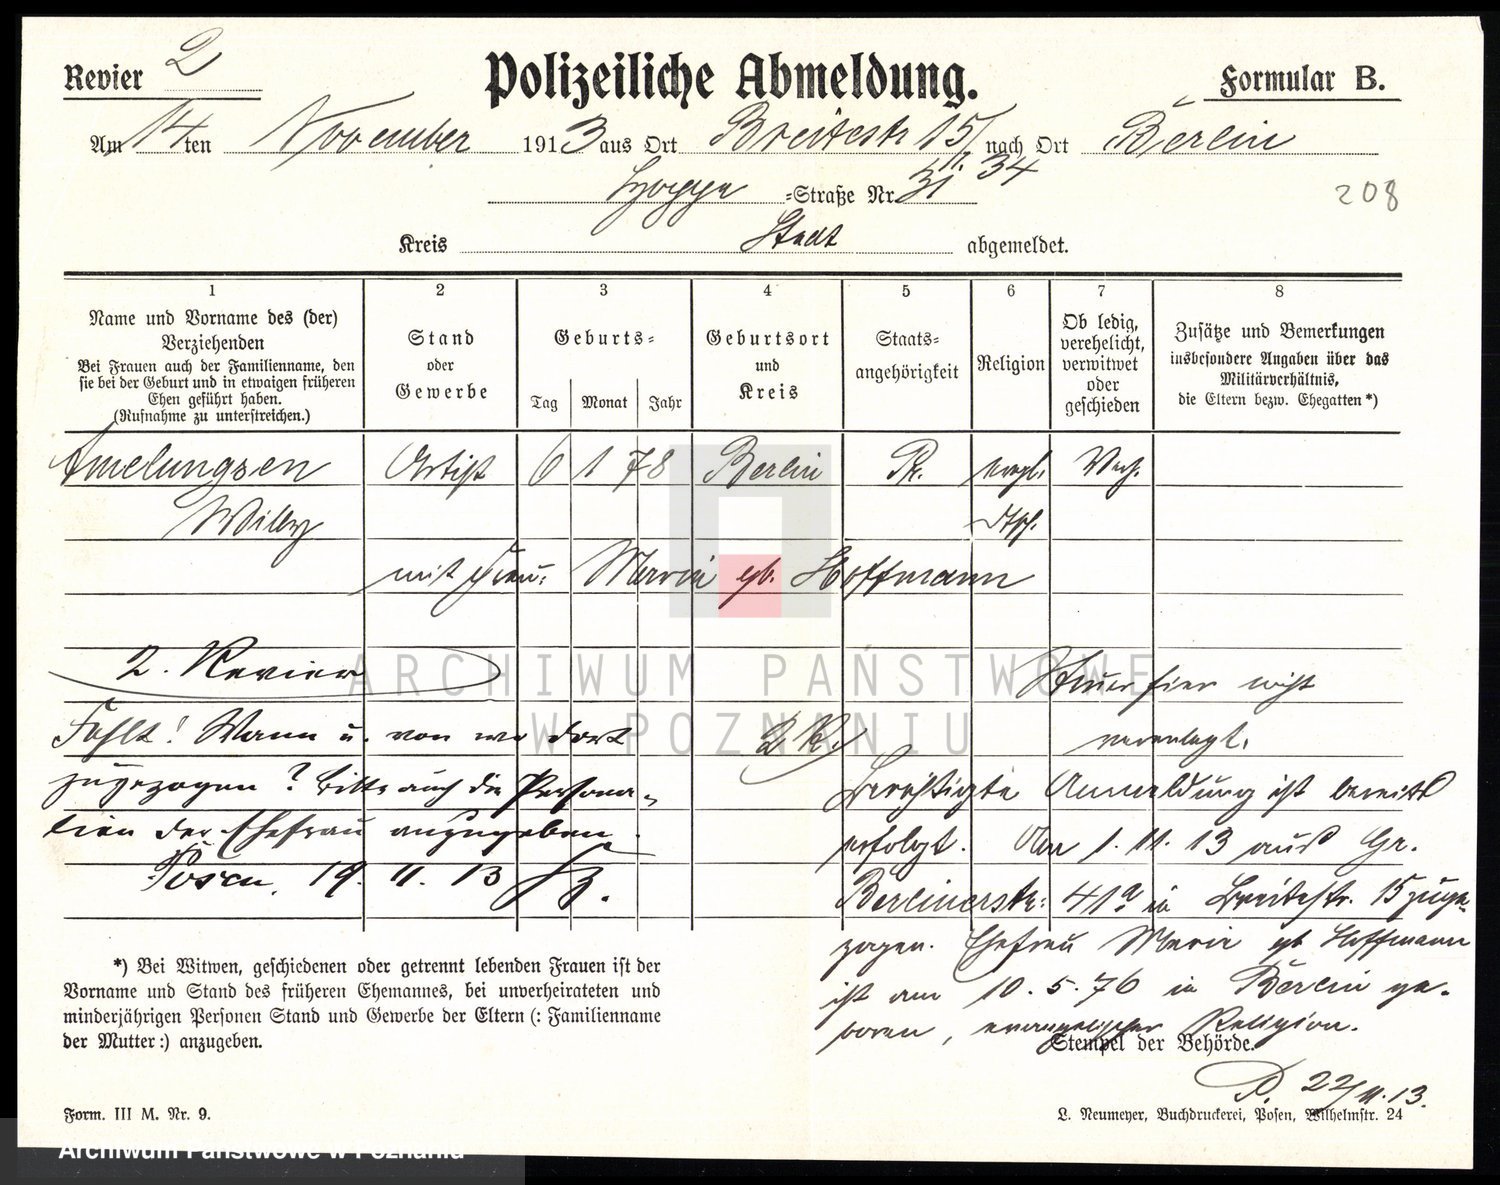 Revier 2
Polizeiliche Abmeldung.
Formular B.
Am 14 ten November 1913 aus Ort Breitestr 15 nach Ort Berlin
-Straße Nr. 34
208
Kreis Stadt abgemeldet.
1 2 3 4 5 6 7 8
Name und Vorname des (der) Verziehenden
Bei Frauen auch der Familienname, den
sie bei der Geburt und in etwaigen früheren
Ehen geführt haben.
(Rufnahme zu unterstreichen.)
Stand
oder
Gewerbe
Geburts-
Tag Monat Jahr
Geburtsort
und
Kreis
Staats-
angehörigkeit
Religion
Ob ledig,
verehelicht,
verwitwet
oder
geschieden
Zusätze und Bemerkungen
insbesondere Angaben über das
Militärverhältnis,
die Eltern bezw. Ehegatten *)
Amelungsen Artist 6 1 78 Berlin Pr. evgl. Verh.
Willy
mit Frau: Maria gb. Hoffmann
2. Revier
Fehlt! Wann u. von wo dort
zugezogen? Bitte auch die Persona-
lien der Ehefrau anzugeben.
Posen, 19. 11. 13
Steuer hier nicht
veranlagt.
Berichtigte Anmeldung ist bereits
erfolgt. Am 1. 11. 13 aus Gr.
Berlinerstr. 41a in Breitestr. 15 zuge-
zogen. Ehefrau Maria gb Hoffmann
ist am 10. 5. 76 in Berlin ge-
boren, evangelischer Religion.
Stempel der Behörde.
P. 22/11.13.
*) Bei Witwen, geschiedenen oder getrennt lebenden Frauen ist der
Vorname und Stand des früheren Ehemannes, bei unverheirateten und
minderjährigen Personen Stand und Gewerbe der Eltern (: Familienname
der Mutter:) anzugeben.
Form. III M. Nr. 9.
L. Neumeyer, Buchdruckerei, Posen, Wilhelmstr. 24
ARCHIWUM PAŃSTWOWE
W POZNANIU
Archiwum Państwowe w Poznaniu